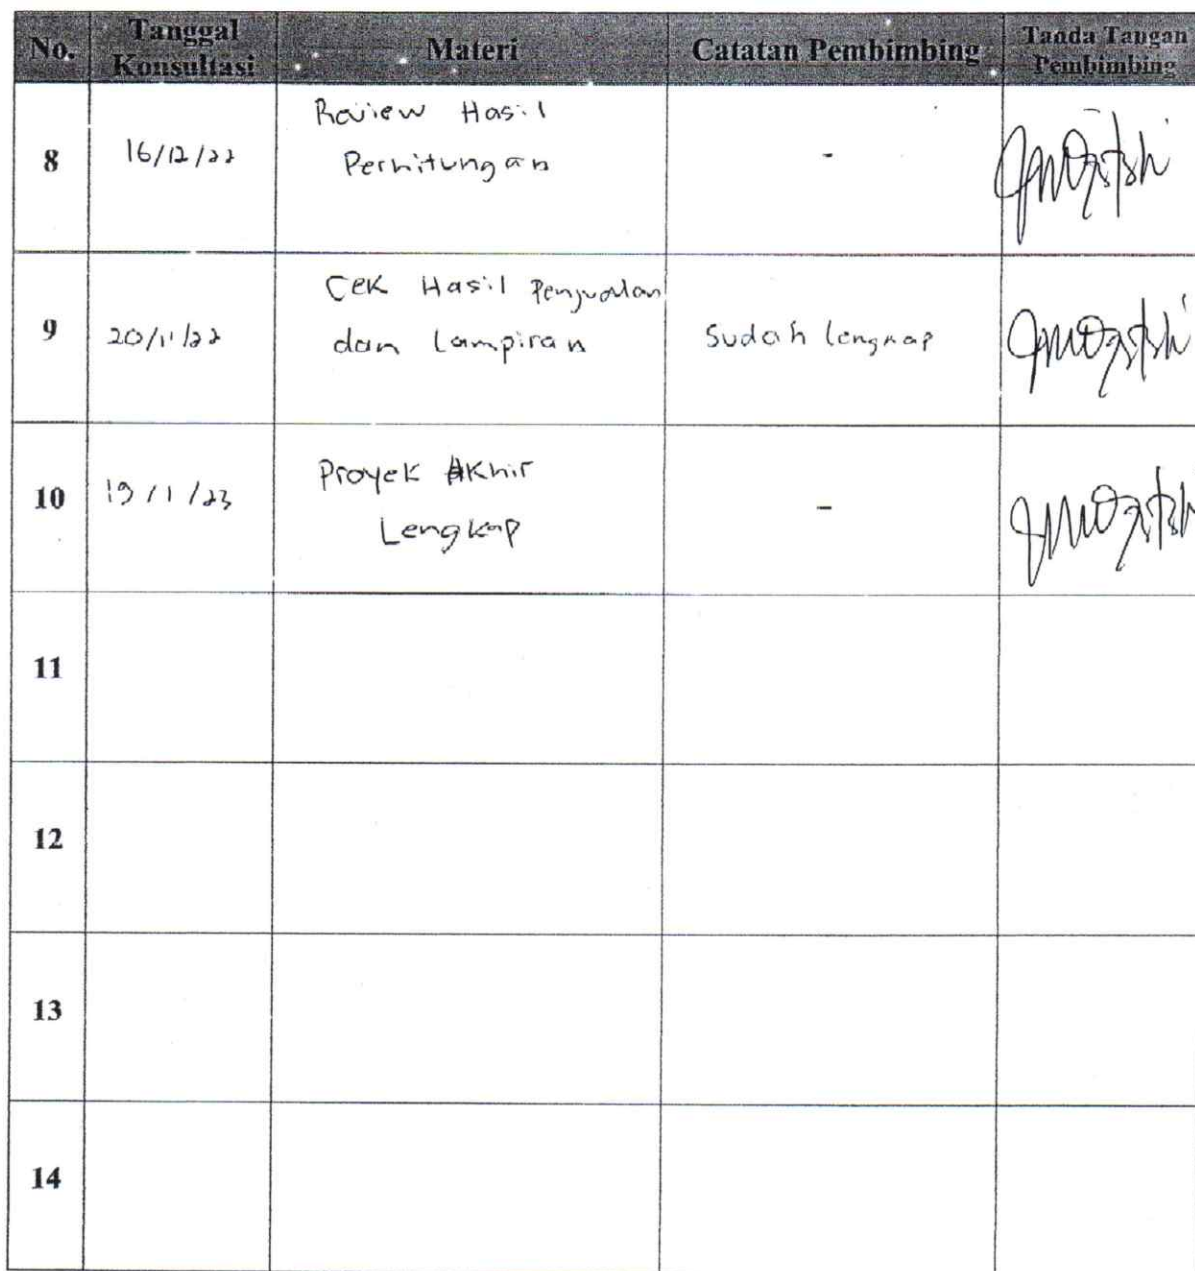 No. Tanggal Konsultasi Materi Catatan Pembimbing Tanda Tangan Pembimbing
8 16/12/22 Review Hasil Perhitungan -
9 20/11/22 Cek Hasil Penjualan dan Lampiran Sudah lengkap
10 19/1/23 Proyek Akhir Lengkap -
11
12
13
14